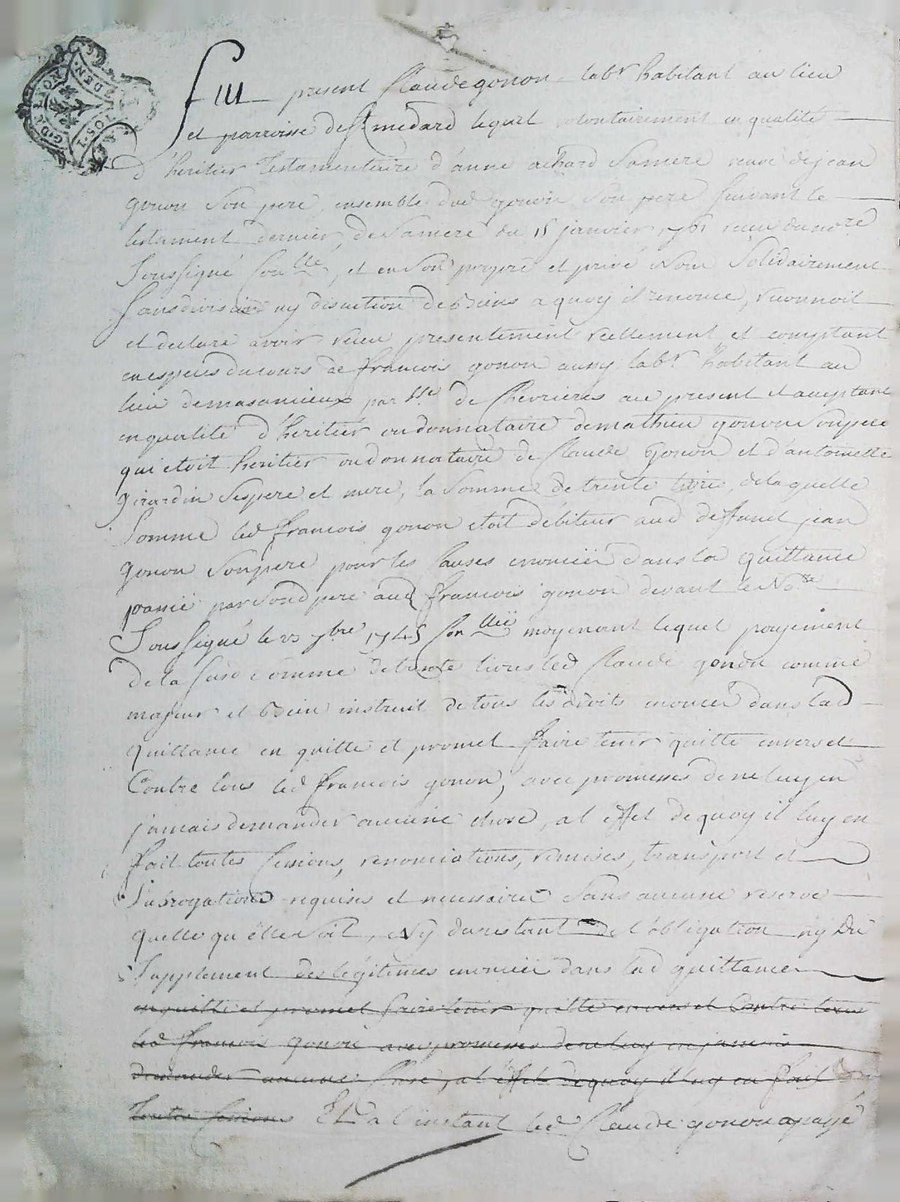 Fut present Claude gonon labr habitant au lieu
et parroisse de st medard lequel volontairement en qualité
d'heritier testamentaire d'anne achard sa mere veuve de jean
gonon son pere, ensemble dud gonon son pere suivant le
testament dernier, de sa mere du 15 janvier 1761 receu du no.re
soussigné Con.lle, et en son propre et privé nom solidairement
sans division ny discution de biens a quoy il renonce, reconnoit
et declare avoir receu presentement reellement et comptant
en especes du cours de francois gonon aussy labr habitant au
lieu de masamieux par.sse de Chevrieres au present et acceptant
en qualité d'heritier ou donnataire de mathieu gonon son pere
qui etoit heritier ou donnataire de Claude gonon et d'antoinette
girardin ses pere et mere, la somme de trente livre, de laquelle
somme led francois gonon etoit debiteur aud deffunct jean
gonon son pere pour les causes enoncées dans la quittance
passée par sond pere aud francois gonon devant le No.re
soussigné le 23 7bre 1745 Con.llée moyenant lequel payement
de la susd somme de trente livres led Claude gonon comme
majeur et bien instruit de tous les droits enoncés dans lad
quittance en quitte et promet faire tenir quitte envers et
Contre tous led francois gonon, avec promesses de ne luy en
jamais demander aucune chose, a l'effet de quoy il luy en
fait toutes Cessions, renonciations, remises, transport et
subrogations requises et necessaires sans aucune reserve
quelle qu'elle soit, Ny du restant de l'obligation ny du
supplement des legitimes enoncée dans lad quittance
en quitte et promet faire tenir quitte envers et Contre tous
led francois gonon avec promesses de ne luy en jamais
demander aucune chose, a l'effet de quoy il luy en fait
toutes Cessions Et a l'instant led Claude gonon a payé